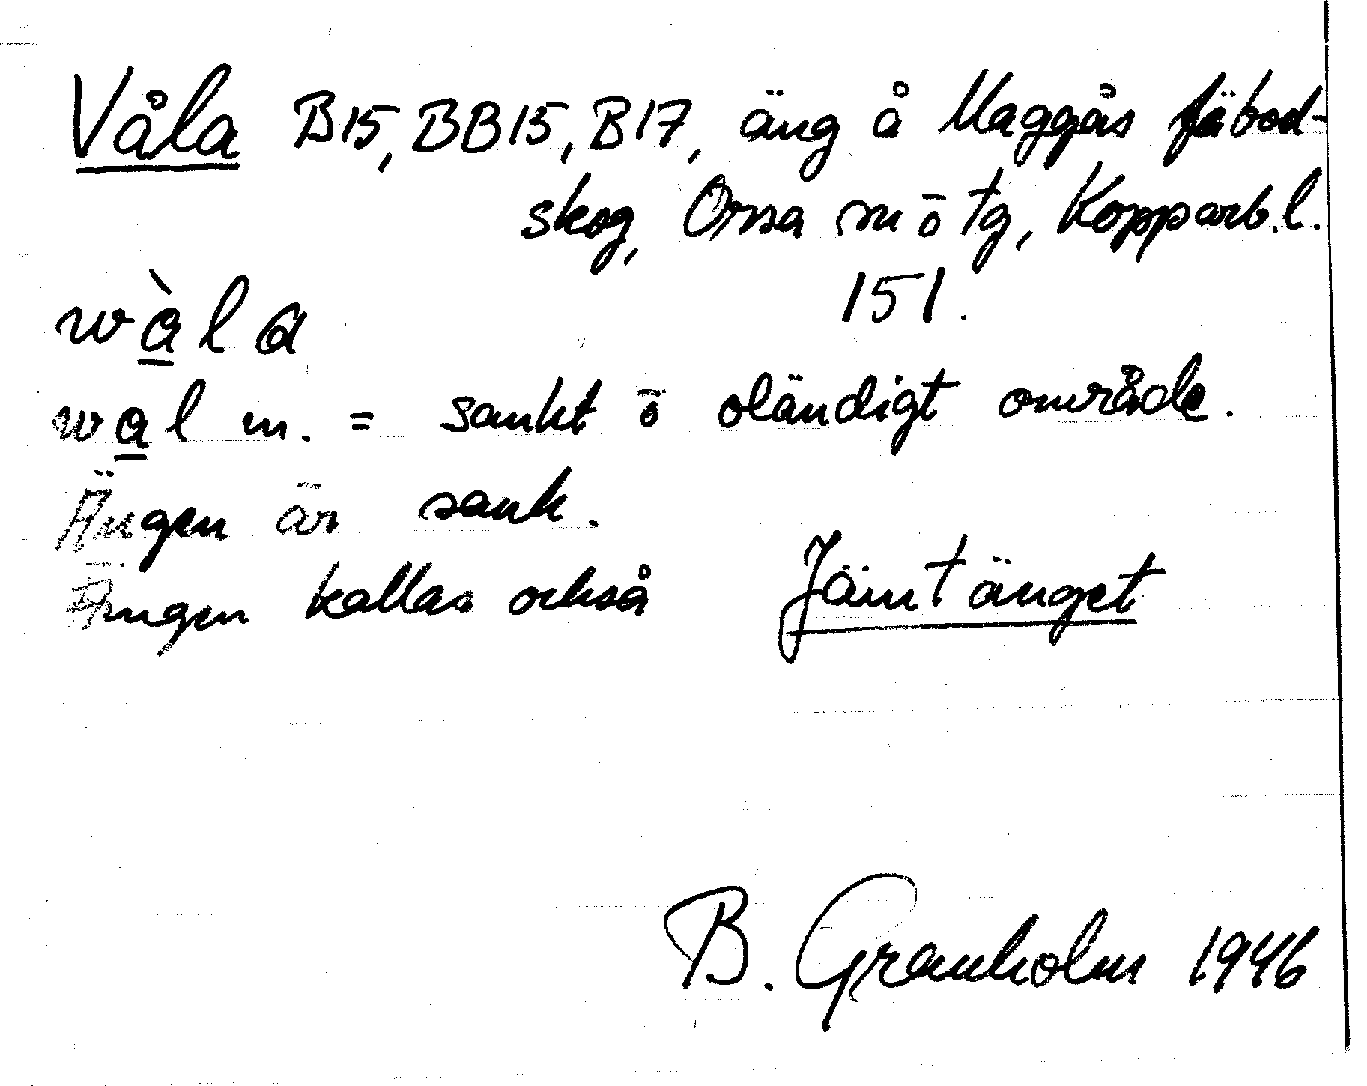 Våla B15, BB15, B17, äng å Maggås fäbod-
skog, Orsa sn ō tg, Kopparb.l.
151.
wàla
wal m. = sankt ō oländigt område.
Ängen är sank.
Ängen kallas också Jämtänget
B. Granholm 1946